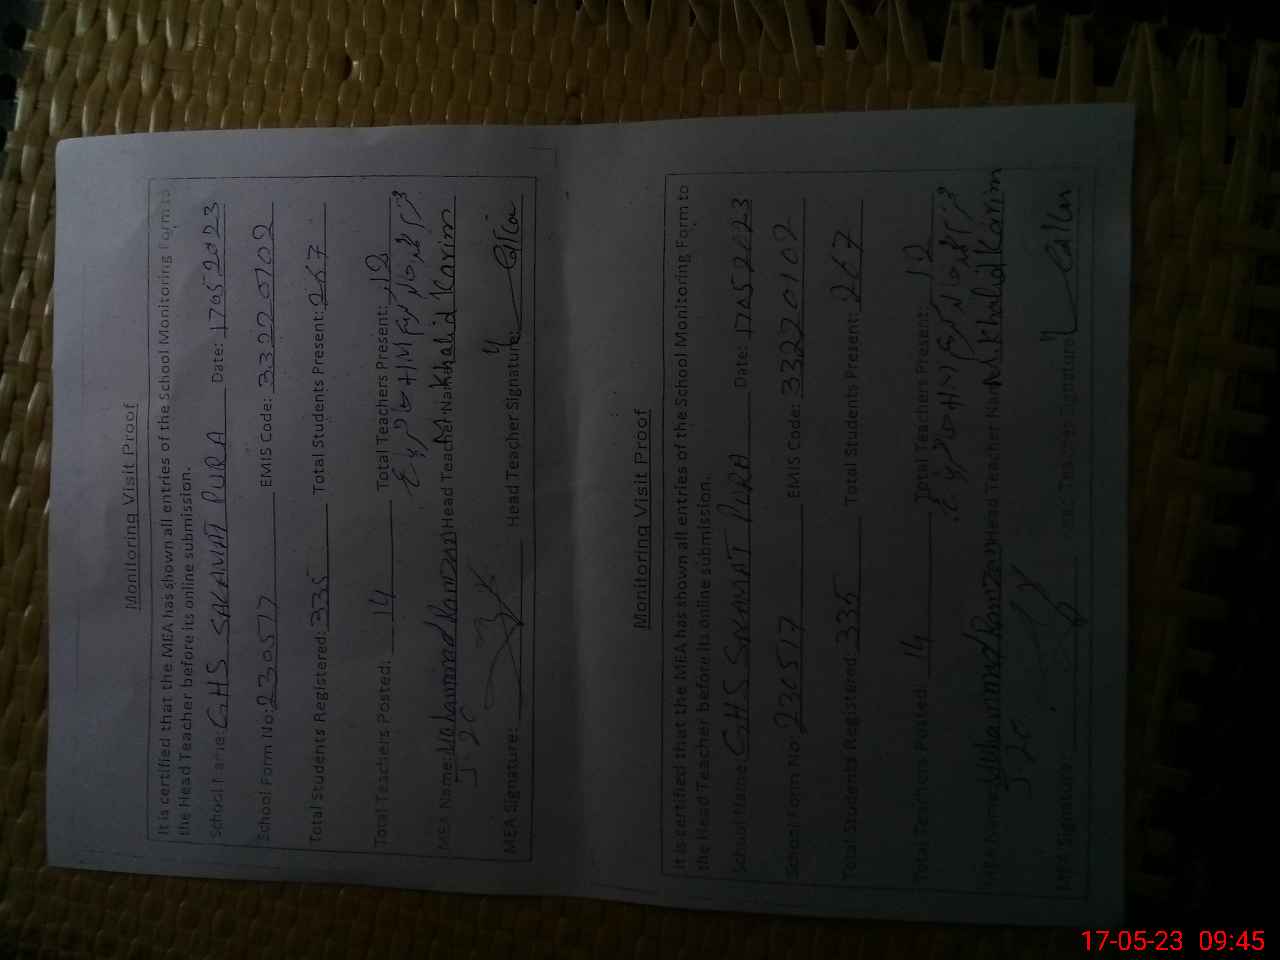 Monitoring Visit Proof
It is certified that the MEA has shown all entries of the School Monitoring Form to
the Head Teacher before its online submission.
School Name: GHS SAKAMAT PURA Date: 17052023
School Form No: 230517 EMIS Code: 33220102
Total Students Registered: 335 Total Students Present: 267
Total Teachers Posted: 14 Total Teachers Present: 12
MEA Name: Muhammad Ramzan Head Teacher Na M Khalid Karim
J-20
MEA Signature: Head Teacher Signature:
Monitoring Visit Proof
It is certified that the MEA has shown all entries of the School Monitoring Form to
the Head Teacher before its online submission.
School Name: GHS SAKAMAT PURA Date: 17052023
School Form No: 230517 EMIS Code: 33220102
Total Students Registered: 335 Total Students Present: 267
Total Teachers Posted: 14 Total Teachers Present: 12
MEA Name: Muhammad Ramzan Head Teacher Nam M Khalid Karim
J-20
MEA Signature: Head Teacher Signature
17-05-23 09:45